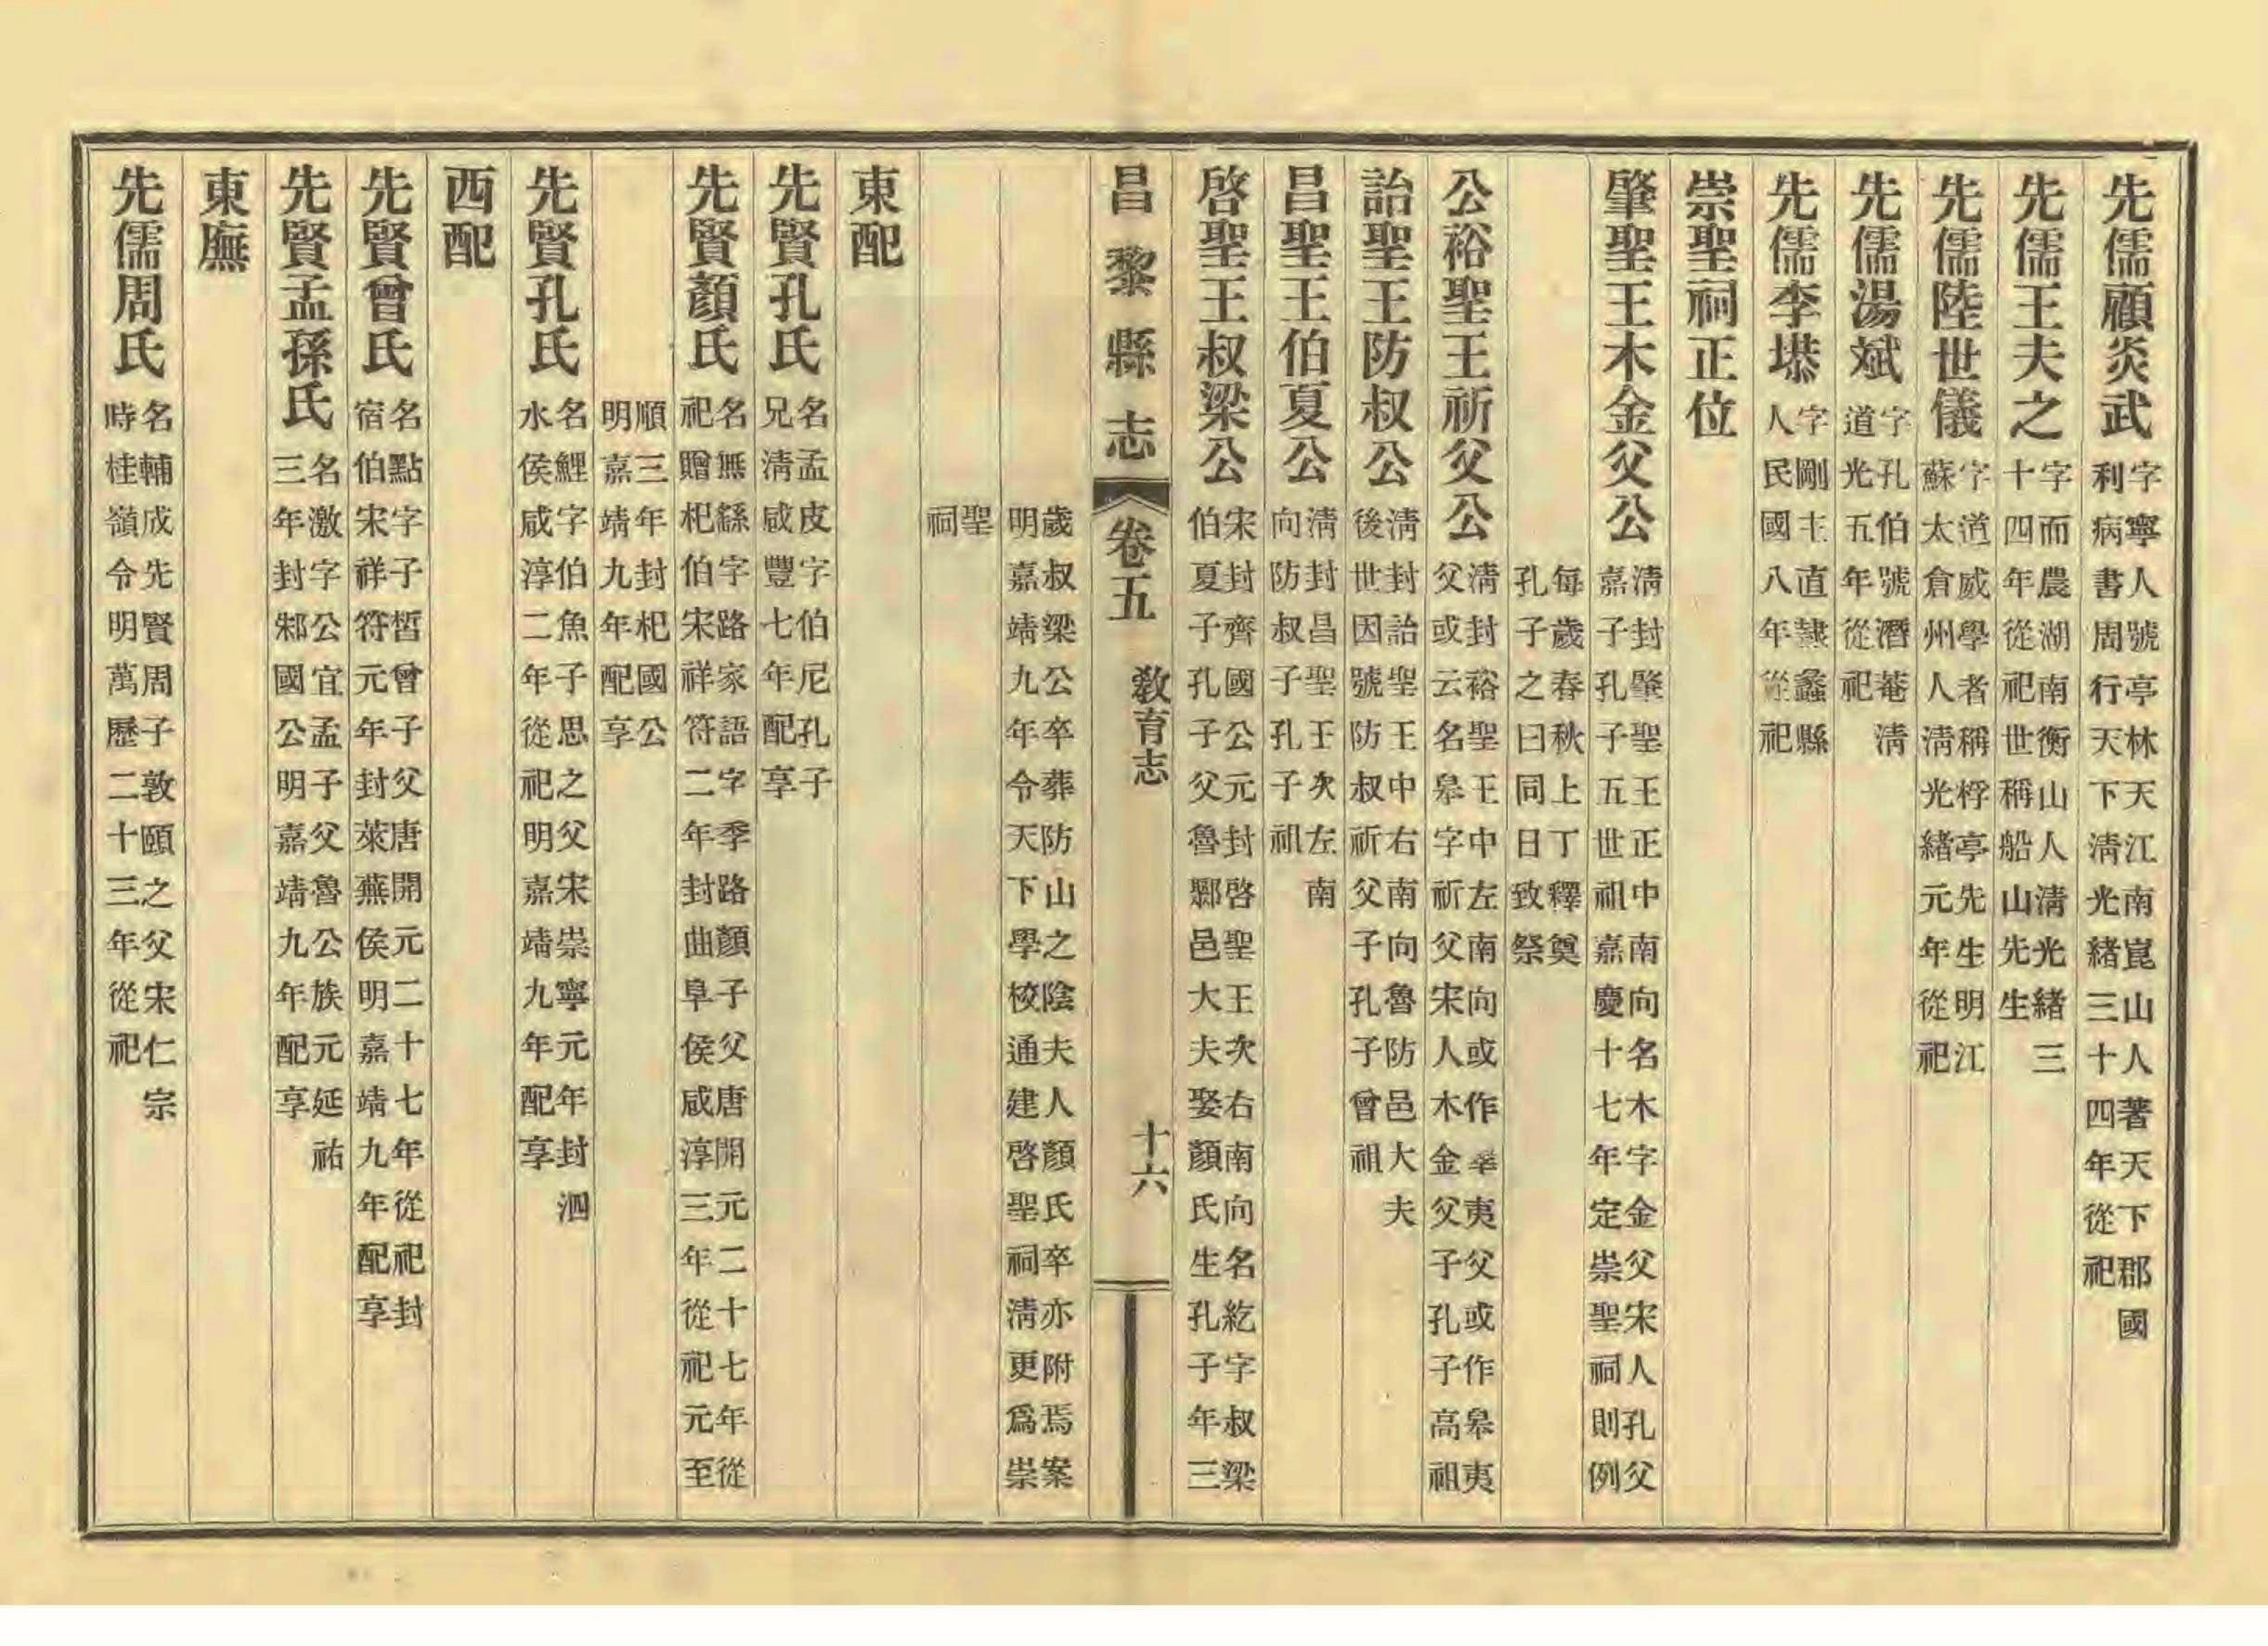 先儒顧炎武字寧人號亭林天江南崑山人著天下郡國利病書周行天下清光緒三十四年從祀
先儒王夫之字而農湖南衡山人清光緒三十四年從祀世稱船山先生
先儒陸世儀字道威學者稱桴亭先生明江蘇太倉州人清光緒元年從祀
先儒湯斌字孔伯號潛菴清道光五年從祀
先儒李塨字剛主直隸蠡縣人民國八年從祀
崇聖祠正位
肇聖王木金父公清封肇聖王正中南向名木字金父宋人孔父嘉子孔子五世祖嘉慶十七年定崇聖祠則例
每歲春秋上丁釋奠孔子之日同日致祭
公裕聖王祈父公清封裕聖王中左南向或作睾夷父或作皋夷父或云名皋字祈父宋人木金父子孔子高祖
詒聖王防叔公清封詒聖王中右南向魯防邑大夫後世因號防叔祈父子孔子曾祖
昌聖王伯夏公清封昌聖王次左南向防叔子孔子祖
啓聖王叔梁公宋封齊國公元封啓聖王次右南向名紇字叔梁伯夏子孔子父魯鄹邑大夫娶顏氏生孔子年三
昌黎縣志 卷五 教育志 十六
歲叔梁公卒葬防山之陰夫人顏氏卒亦附焉案明嘉靖九年令天下學校通建啓聖祠清更爲崇
聖祠
東配
先賢孔氏名孟皮字伯尼孔子兄清咸豐七年配享
先賢顏氏名無繇字路家語字季路顏子父唐開元二十七年從祀贈杞伯宋祥符二年封曲阜侯咸淳三年從祀元至
順三年封杞國公明嘉靖九年配享
先賢孔氏名鯉字伯魚子思之父宋崇寧元年封泗水侯咸淳二年從祀明嘉靖九年配享
西配
先賢曾氏名點字子晳曾子父唐開元二十七年從祀封宿伯宋祥符元年封萊蕪侯明嘉靖九年配享
先賢孟孫氏名激字公宜孟子父魯公族元延祐三年封邾國公明嘉靖九年配享
東廡
先儒周氏名輔成先賢周子敦頤之父宋仁宗時桂嶺令明萬歷二十三年從祀